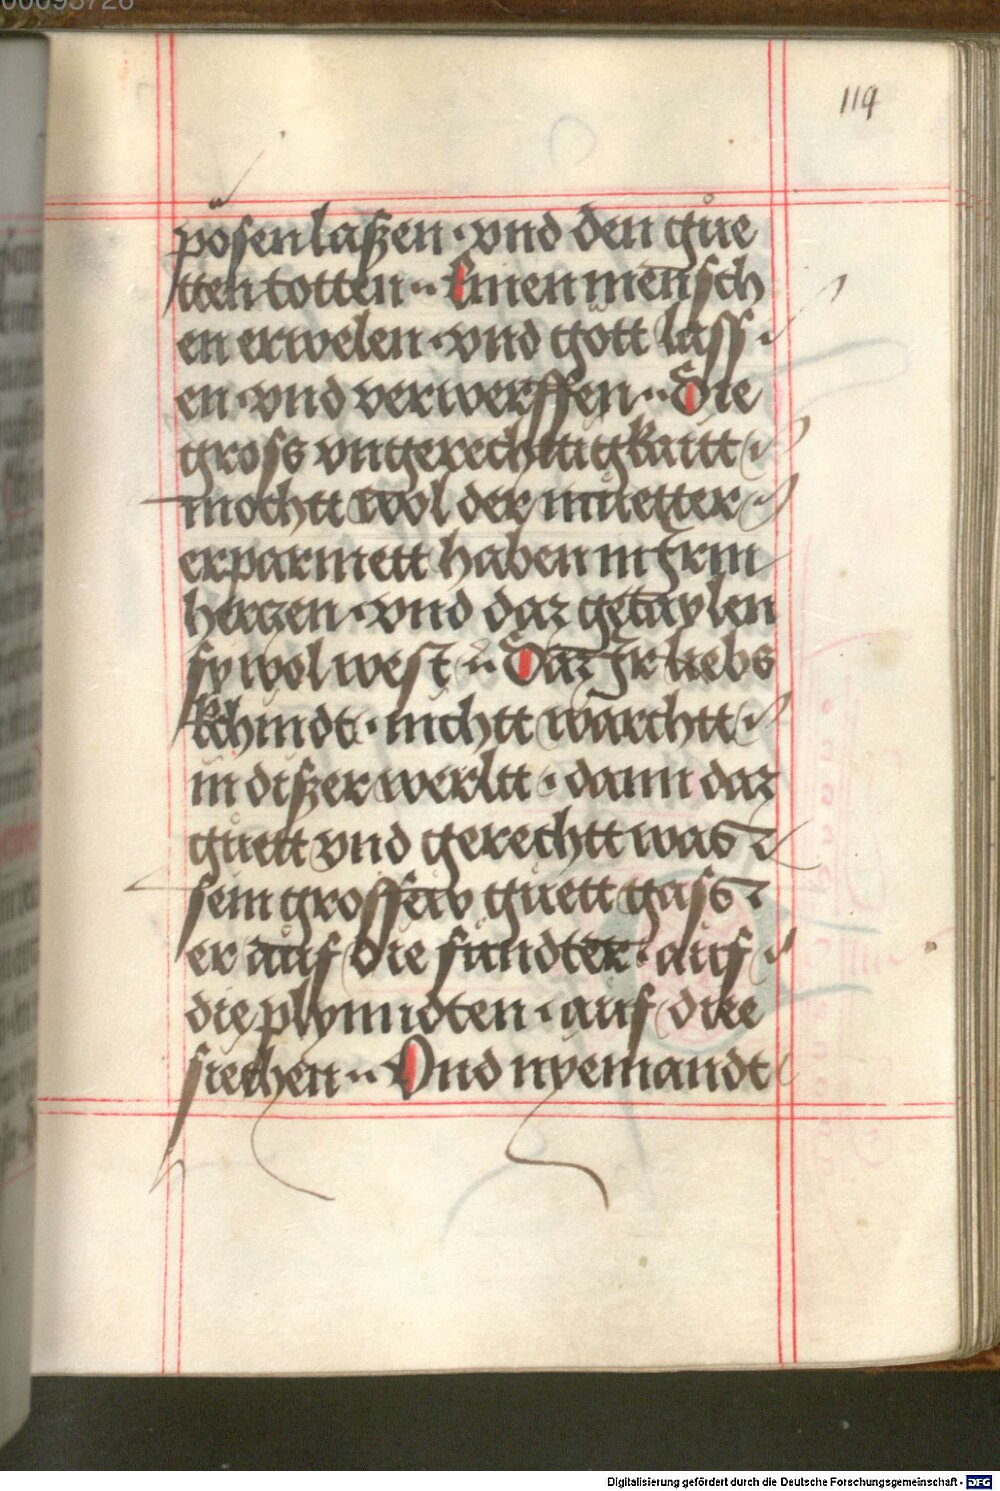 00093726
119
pösen laßen · vnd den gůe
tten totten ·· Ainen mensch
en erwelen · vnd gott lass
en · vnd verwerffen ·· Die
gross vngerechttigkaitt
mochtt wol der můetter
erparmett haben in Irm
herczen · vnd daz getaylen
sy wol west ·· Daz Ir liebs
khindt · nichtt warchtt
in dißer werltt · dann daz
gůett vnd gerechtt was
sein grossew gůett gass
er auf die sündter · auf
die plynndten · auf die
siechen ·· Vnd nyemandt
Digitalisierung gefördert durch die Deutsche Forschungsgemeinschaft - DFG